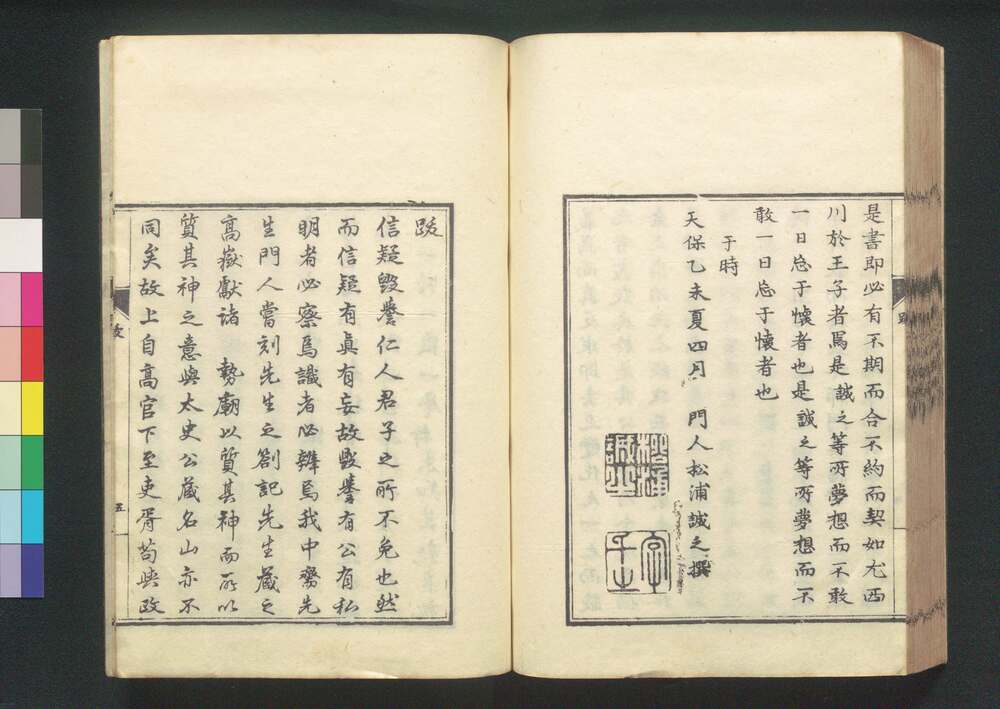 是書即必有不期而合不約而契如尤西
川於王子者焉是誠之等所夢想而不敢
一日忘于懷者也是誠之等所夢想而不
敢一日忘于懷者也
于時
天保乙未夏四月 門人松浦誠之撰
松浦
誠之
跋
信疑毀譽仁人君子之所不免也然
而信疑有眞有妄故毀譽有公有私
明者必察焉識者必辨焉我中齋先
生門人嘗刻先生之劄記先生藏之
高嶽獻諸 勢廟以質其神而所以
質其神之意與太史公藏名山亦不
同矣故上自高官下至吏胥苟與政
五